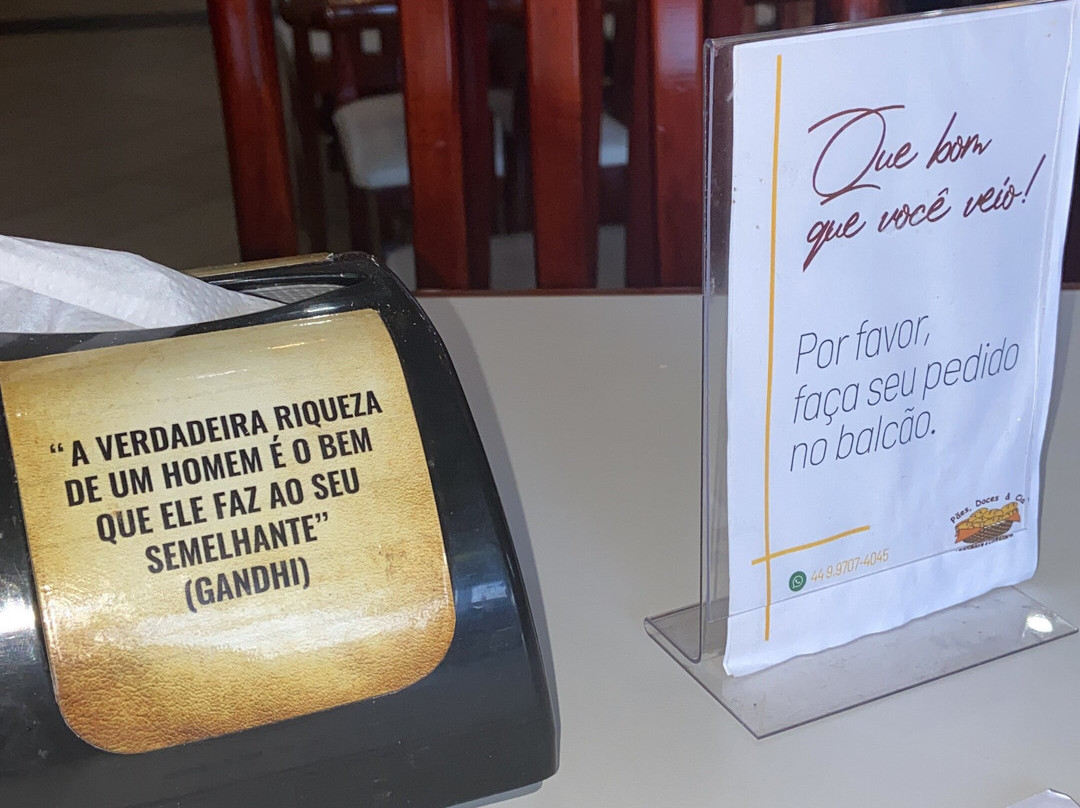 “ A VERDADEIRA RIQUEZA
DE UM HOMEM É O BEM
QUE ELE FAZ AO SEU
SEMELHANTE”
(GANDHI)
Que bom
que você veio!
Por favor,
faça seu pedido
no balcão.
Pães, Doces & Cia
44 9.9707-4045